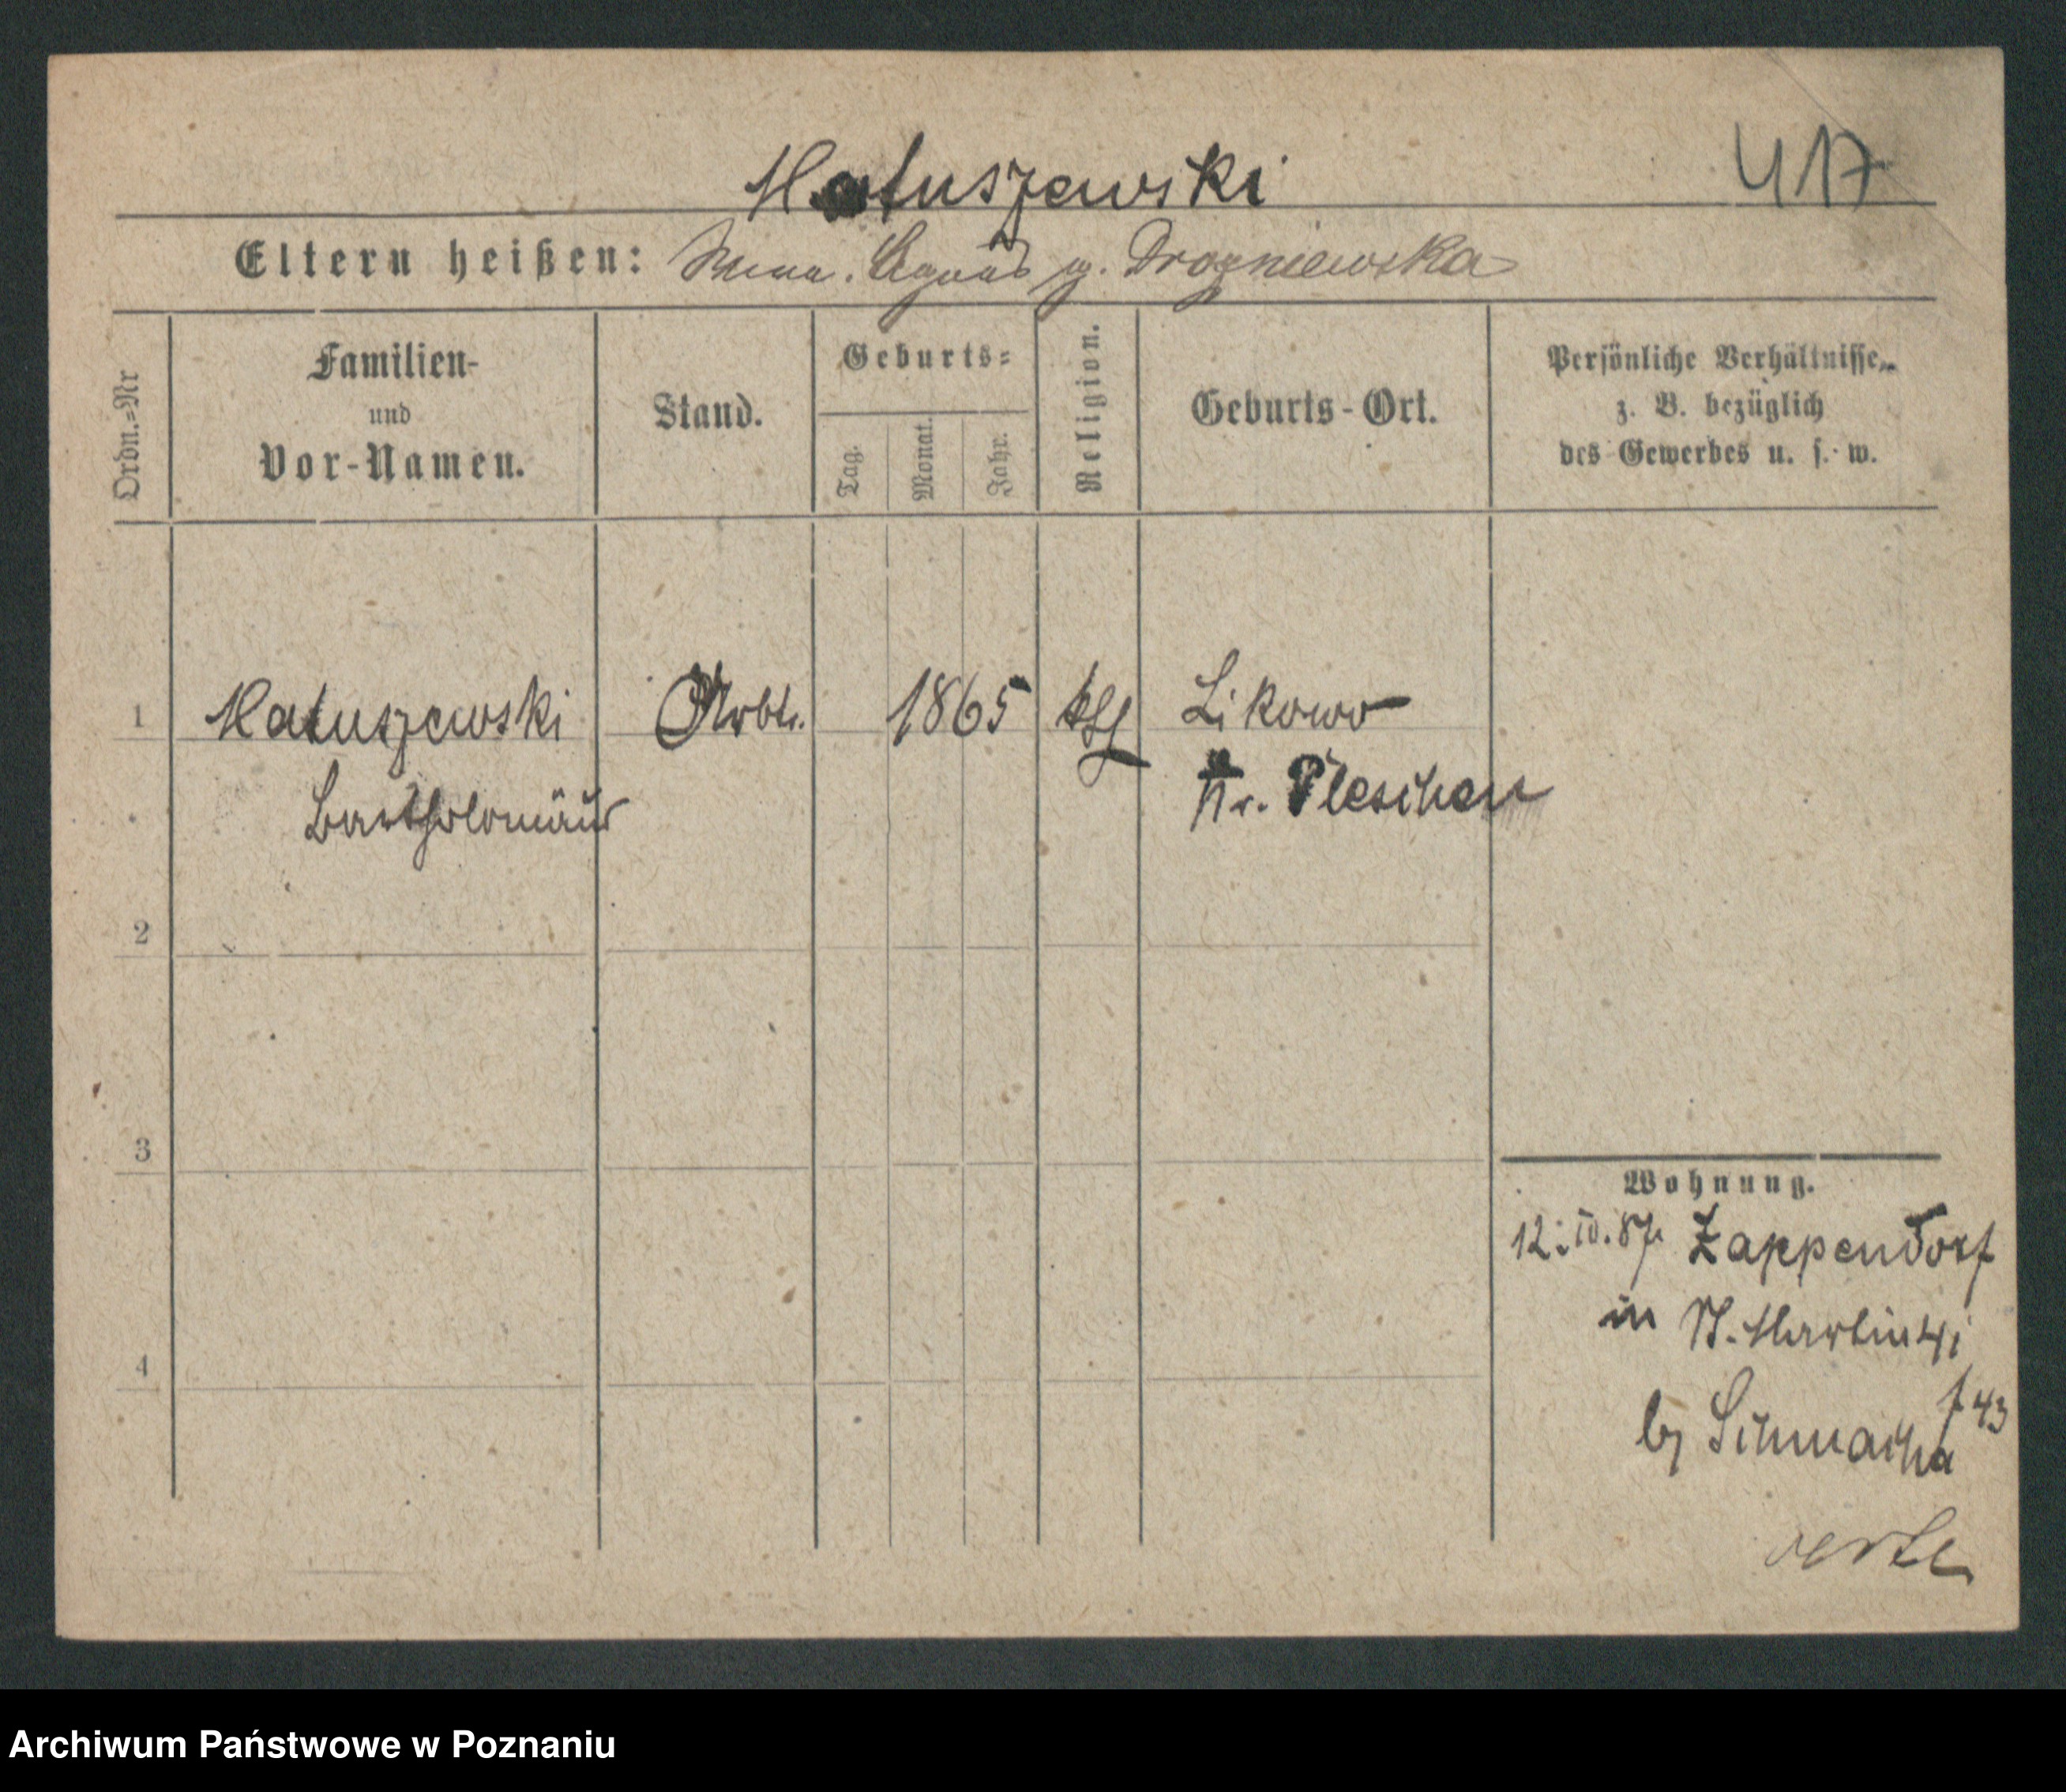 Matuszewski
417
Eltern heißen: Agnes g. Drogniewska
Ordn.=Nr
Familien-
und
Vor-Namen.
Stand.
Geburts=
Tag.
Monat.
Jahr.
Religion.
Geburts-Ort.
Persönliche Verhältnisse,
z. B. bezüglich
des Gewerbes u. s. w.
1 Matuszewski Arbtr. 1865 kth Likowo
Bartholomäus Kr. Pleschen
2
3
4
Wohnung.
12. 10. 87 Zappendorf
in St. Martin 41
f 43
by Schmacha
Archiwum Państwowe w Poznaniu